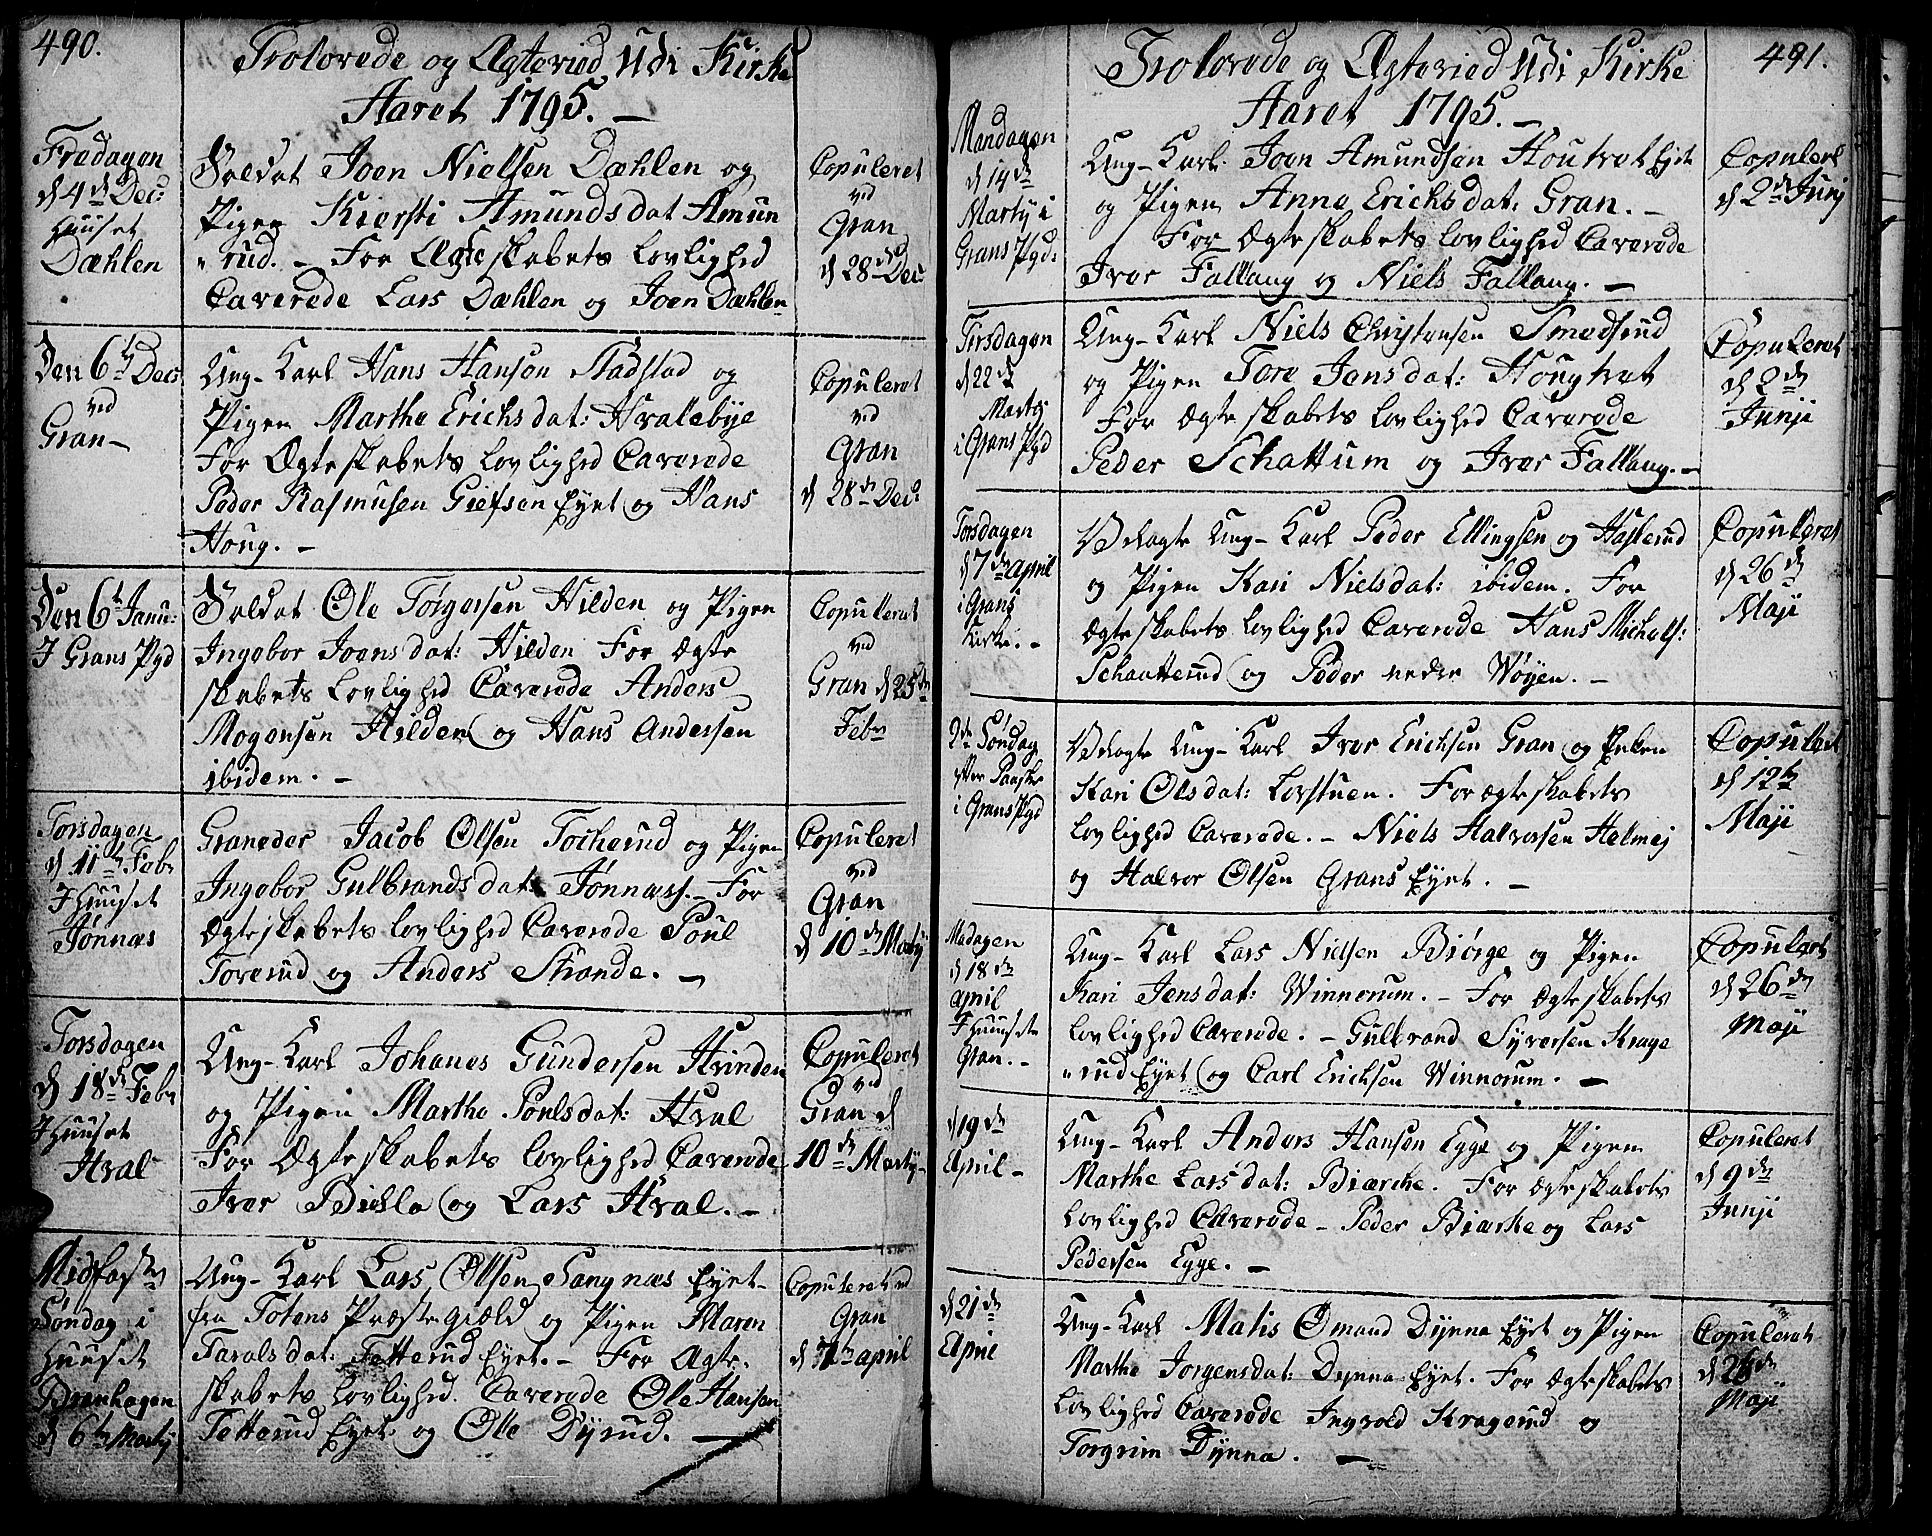 490.
Trolovede og Ægtevied Udi Kirke
Aaret 1795. —
Fredagen
d 4de Dec:
Huuset
Dæhlen
Soldat Joen Nielsen Dæhlen og
Pigen Kiersti Amundsdat Amun
"rud. — For Ægteskabets Lovlighed
Caverede Lars Dæhlen og Joen Dæhlen
Copuleret
ved
Gran
d 28de Dec
Den 6te Decr
ved
Gran —
Ung-Karl Hans Hansen Stadstad og
Pigen Marthe Erichsdat: Hvalebÿe
For Ægteskabets Lovlighed Caverede
Peder Rasmusen Giefsen Eyet og Hans
Houg. —
Copuleret
ved
Gran
d 28de Decr
Den 6te Janu:
I Grans Pgd
Soldat Ole Tørgersen Hilden og Pigen
Ingebor Joensdat: Hilden For Ægte
skabets Lovlighed Caverede Anders
Mogensen Hilden og Hans Andersen
ibidem. —
Copulleret
ved
Gran d 25de
Febr
Torsdagen
d 11te Febr
I Huuset
Tønnæs
Graneder Jacob Olsen Tocherud og Pigen
Ingebor Gulbrandsdat: Tønnæss. — For
Ægteskabets Lovlighed Caverede Poul
Toverud og Anders Strande. —
Copuleret
ved
Gran
d 10de Martÿ
Torsdagen
d 18de Febr
I Huuset
Hval
Ung-Karl Johanes Gundersen Hvinden
og Pigen Marthe Poulsdat: Hval
For Ægteskabets Lovlighed Caverede
Iver Bichla og Lars Hval. —
Copuleret
ved
Gran d
10de Martÿ
Midfaste
Søndag i
Huuset
Drenhagen
d 6te Martÿ
Ung-Karl Lars Olsen Sangnæs Eyet
fra Totens Præstegiæld og Pigen Maren
Taralsdat: Tetterud Eyet. — For Ægte-
skabets Lovlighed Caverede Ole Hansen
Tetterud Eyet og Ole Dÿrud. —
Copuleret ved
Gran
d 7te april
491.
Trolovede og Ægtevied Udi Kirke
Aaret 1795. —
Mandagen
d 14de
Martÿ i
Grans Pgd:
Ung-Karl Joen Amundsen Houtvet Eyet
og Pigen Anne Erichsdat: Gran. —
For Ægteskabets Lovlighed Caverede
Iver Fallang og Niels Fallang. —
Copulert
d 2de Junÿ
Tirsdagen
d 22de
Martÿ
i Grans Pgd
Ung-Karl Niels Christensen Smedsrud
og Pigen Tore Jensdat: Hougtvet
For Ægteskabets Lovlighed Caverede
Peder Schattum og Iver Fallang. —
Copuleret
d 2de
Junji
Torsdagen
d 7de April
i Grans
Kirke. —
Vedtagte Ung-Karl Peder Ellingsen og Hasterud
og Pigen Kari Nielsdat: ibidem. For
Ægteskabets Lovlighed Caverede Hans Michels:
Schaatterud og Peder neder Wøyen. —
Copulleret
d 26de
Maji
2de Søndag
efter Paaske
i Grans Pgd
Vedtagte Ung-Karl Iver Erichsen Gran og Enken
Kari Olsdat: Lovstuen. For Ægteskabets
Lovlighed Caverede. — Niels Halvorsen Helmej
og Halvor Olsen Grans Eyet. —
Copulert
d 12te
Maji
Madagen
d 18de
April
I Huuset
Gran. —
Ung-Karl Lars Nielsen Biørge og Pigen
Kari Jensdat: Winnorum. — For Ægteskabets
Lovlighed Caverede. — Gulbrand Syversen Krage
"rud Eyet og Carl Erichsen Winnorum. —
Copulert
d 26de
Maji
d 19de
April —
Ung-Karl Anders Hansen Egge og Pigen
Marthe Larsdat: Biærche. For Ægteskabets
Lovlighed Caverede — Peder Biærke og Lars
Pedersen Egge. —
Copuleret
d 9de
Junji
d 21de
April
Ung-Karl Matis Omand Dÿnna Eyet og Pigen
Marthe Jorgensdat: Dynna Eyet. For Ægteskabets
Lovlighed Caverede Ingvold Kragerud og
Torgrim Dÿnna. —
Copuleret
d 26de
Maji